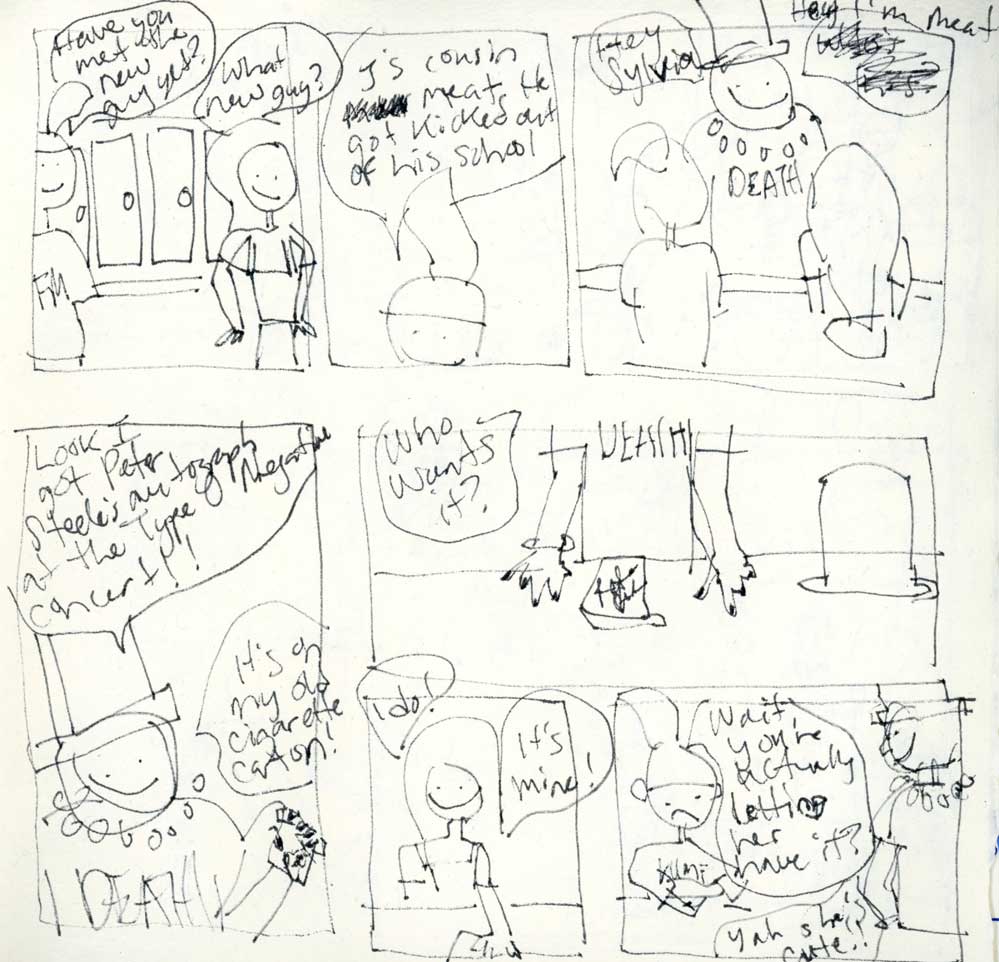 Have you
met the
new
guy yet?
What
new guy?
J's cousin
meat. He
got kicked out
of his school
Hey
Sylvia
Hey I'm meat
DEATH
FM
Look I
got Peter
Steele's autograph
at the Type Negative
concert!!
It's on
my old
cigarette
carton!
DEATH
Who
wants
it?
DEATH
I do!
It's
mine!
Wait,
you're
actually
letting
her
have it?
KMF
Yah she's
cute!!